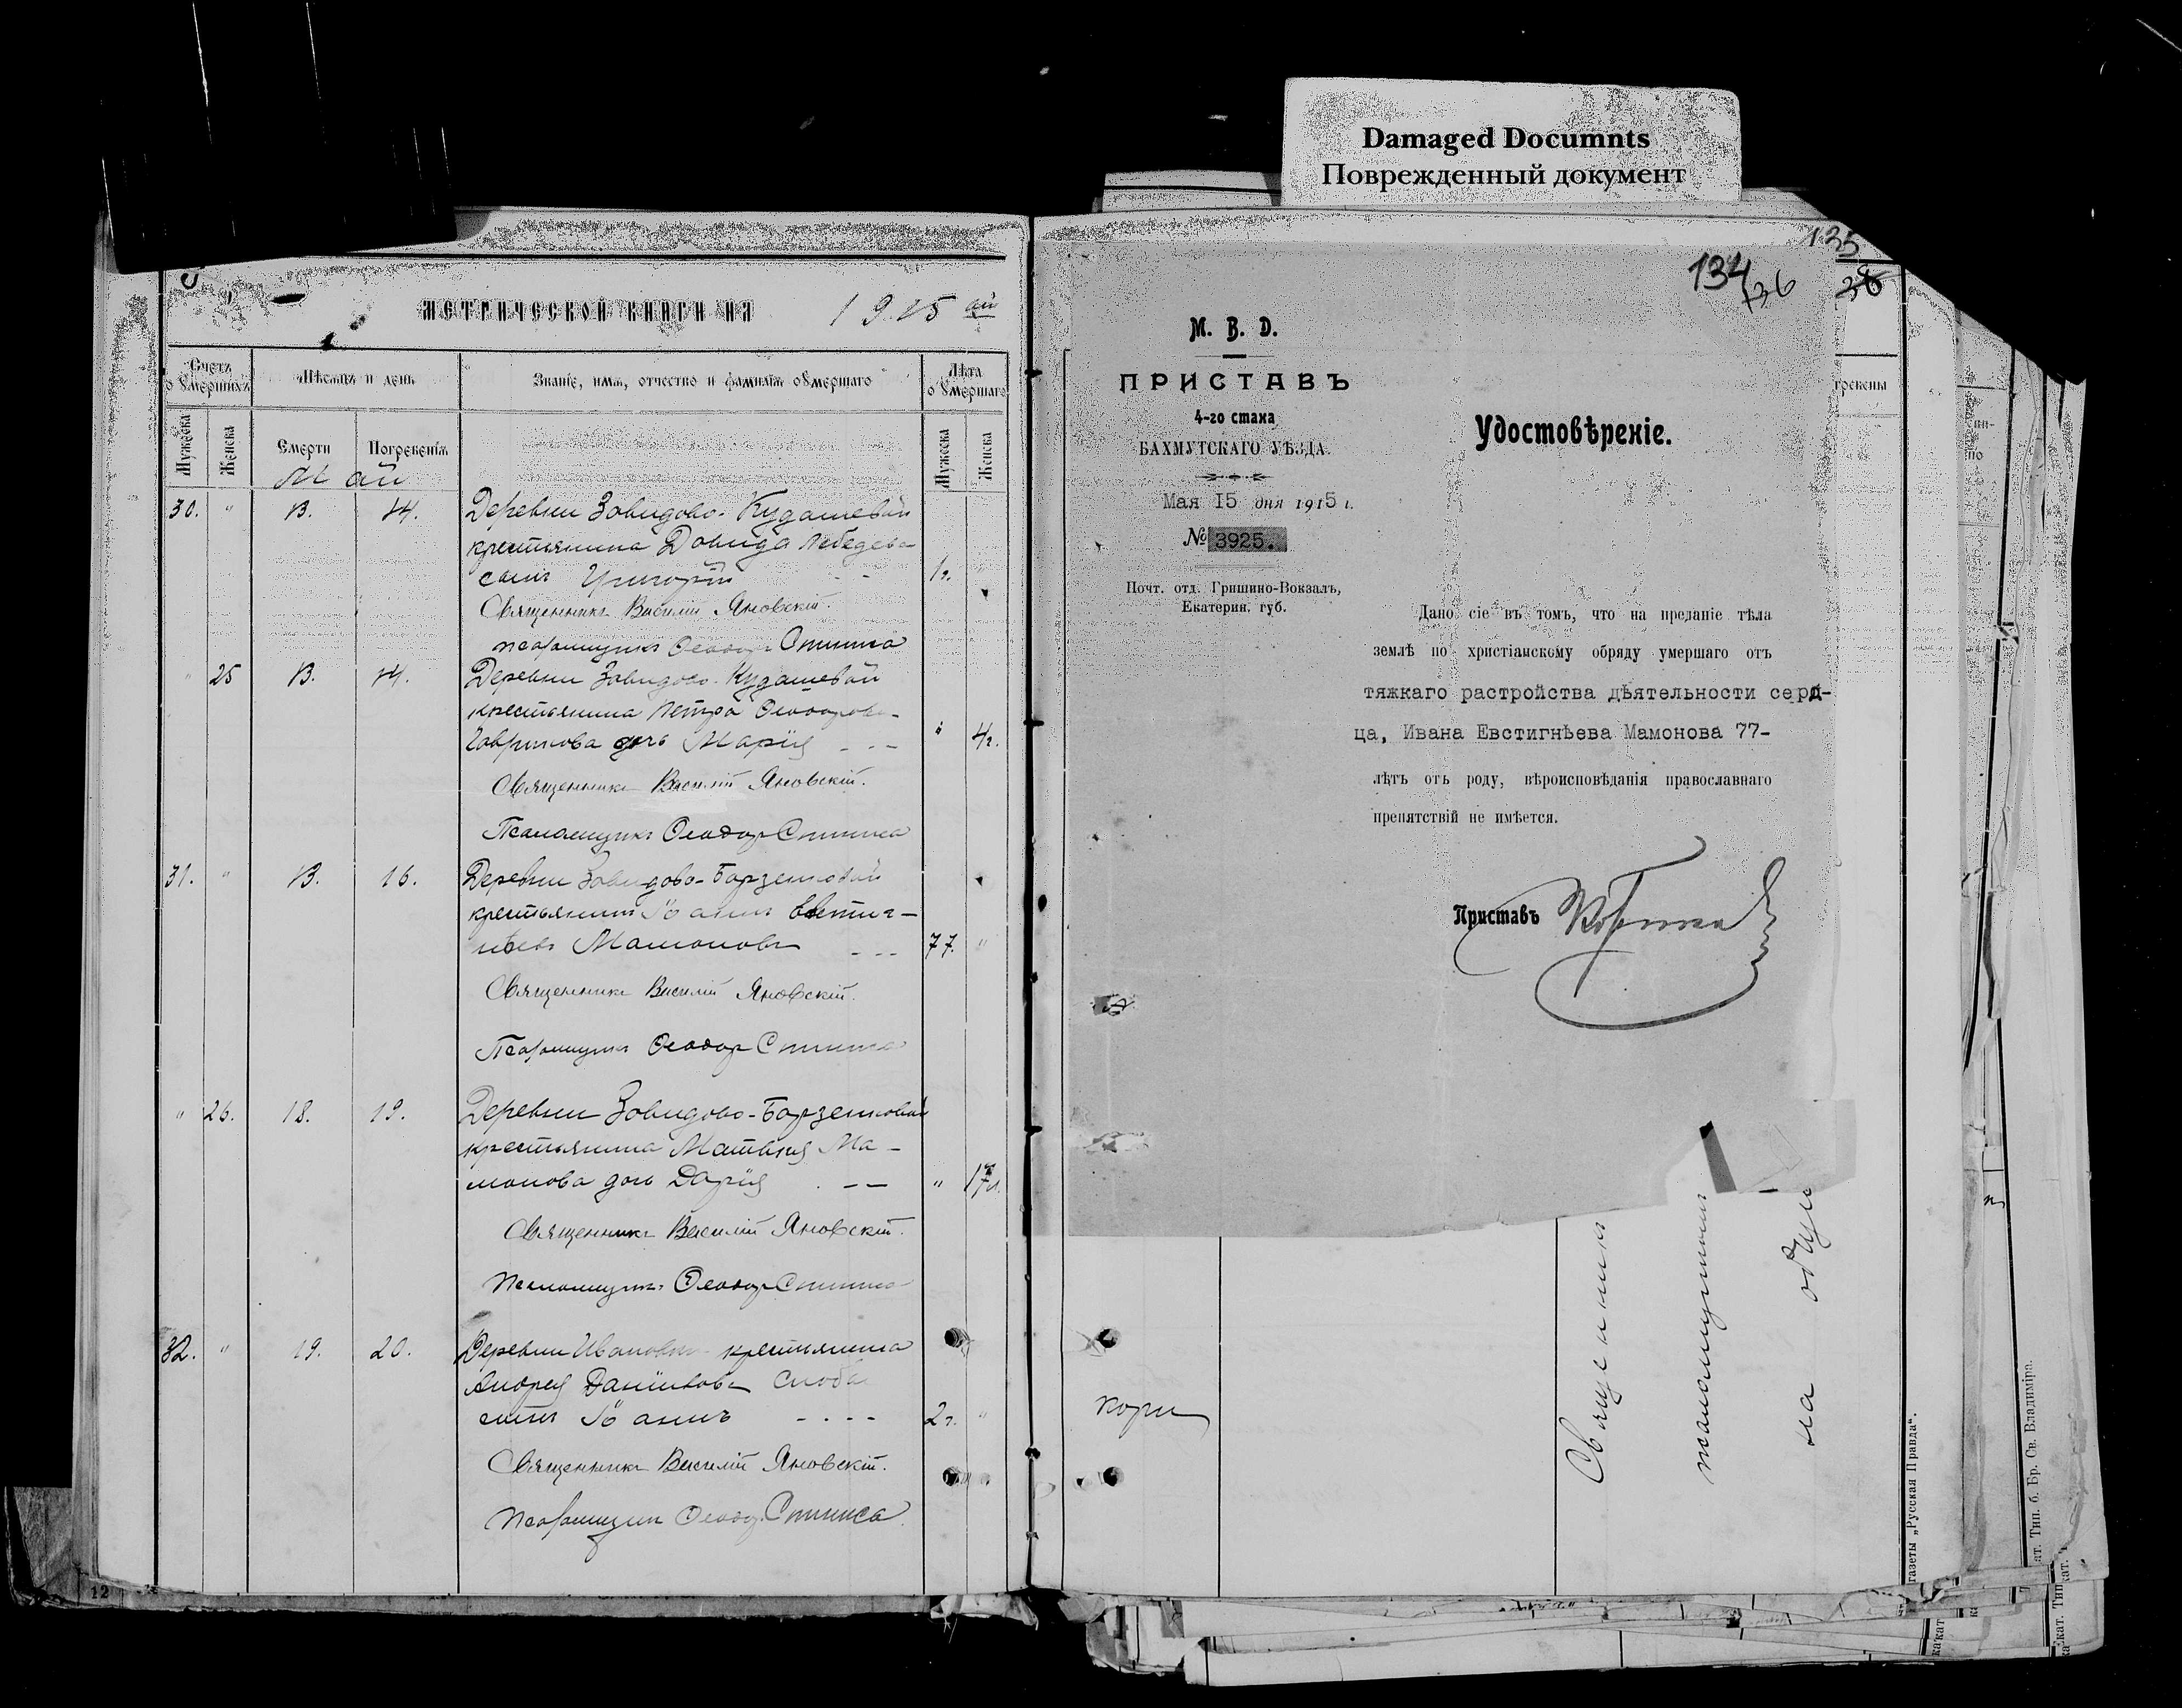 Damaged Documnts
Поврежденный документ
МЕТРИЧЕСКОЙ КНИГИ НА 1915 ый
Счетъ оумершихъ
Мѣсяцъ и день
Званіе, имя, отчество и фамилія оумершаго
Лѣта оумершаго
Мужеска
Женска
Смерти
Погребенія
Мужеска
Женска
Май
30. " 13. 14. Деревни Завидово-Кудашевой
крестьянина Давида Лебедева
сынъ Григорій - - 1г.
Священникъ Василій Яновскій.
псаломщикъ Ѳеодоръ
" 25 13. 14. Деревни Завидово-Кудашевой
крестьянина Петра Ѳеодорова
Гаврилова дочь Марія - - - " 4г.
Священникъ Василій Яновскій.
Псаломщикъ Ѳеодоръ
31. " 13. 16. Деревни Завидово-Борзенковой
крестьянинъ Іоаннъ Евстиг-
нѣевъ Мамоновъ - - - 77. "
Священникъ Василій Яновскій.
Псаломщикъ Ѳеодоръ
" 26. 18. 19. Деревни Завидово-Борзенковой
крестьянина Матвѣя Ма-
монова дочь Дарія - - "
Священникъ Василій Яновскій.
Псаломщикъ Ѳеодоръ
32. " 19. 20. Деревни Ивановки крестьянина
Андрея
сынъ Іоаннъ - - - - 2г. "
Священникъ Василій Яновскій.
псаломщикъ Ѳеодоръ
12
135
134
136
38
М. В. D.
ПРИСТАВЪ
4-го стана
БАХМУТСКАГО УѢЗДА.
Мая 15 дня 1915 г.
№ 3925.
Почт. отд. Гришино-Вокзалъ,
Екатерин. губ.
Удостовѣреніе.
Дано сіе въ томъ, что на преданіе тѣла
землѣ по христіанскому обряду умершаго отъ
тяжкаго растройства дѣятельности серд-
ца, Ивана Евстигнѣева Мамонова 77-
лѣтъ отъ роду, вѣроисповѣданія православнаго
препятствій не имѣется.
Приставъ
гребены
кори
Священник
псаломщикъ
на
газеты „Русская Правда“.
кат. Тип. б. Бр. Св. Владиміра.